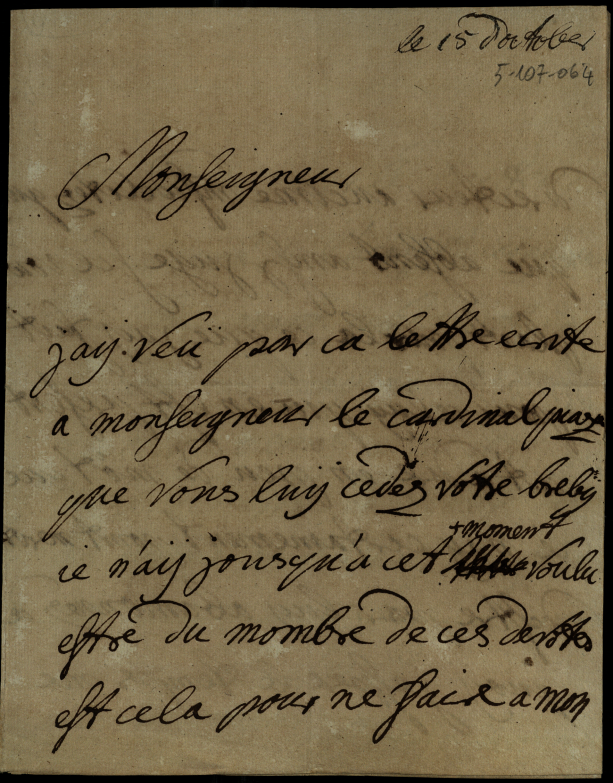 le 15 Doctober
5-107-064
Monseigneur
jaij veu par ca lettre ecrite
a monseigneur le cardinal
que vous luij cedes votre breby
+moment
ie n'aij jousqu'a cet voulu
estre du mombre de ces devotes
est cela pour ne faire a mon